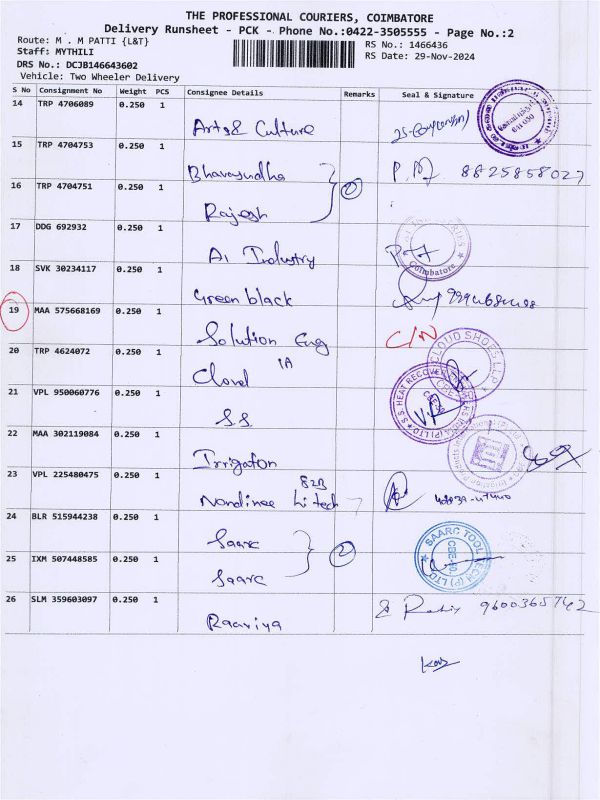 THE PROFESSIONAL COURIERS, COIMBATORE
Delivery Runsheet - PCK - Phone No.:0422-3505555 - Page No.:2
Route: M . M PATTI {L&T}
RS No.: 1466436
Staff: MYTHILI
RS Date: 29-Nov-2024
DRS No.: DCJB146643602
Vehicle: Two Wheeler Delivery
S No Consignment No Weight PCS Consignee Details Remarks Seal & Signature
14 TRP 4706089 0.250 1
Arts & Culture
15 TRP 4704753 0.250 1
Bhavasudha 8825858027
16 TRP 4704751 0.250 1 2
Rajesh
17 DDG 692932 0.250 1
A1 Industry Coimbatore
18 SVK 30234117 0.250 1
Green black
19 MAA 575668169 0.250 1
Solution Eng C/N
20 TRP 4624072 0.250 1 CLOUD SHOES LLP
Cloud IA
21 VPL 950060776 0.250 1 S.S. HEAT
S.S
22 MAA 302119084 0.250 1
Irrigation
23 VPL 225480475 0.250 1
Nandinee hi tech B2B
24 BLR 515944238 0.250 1
Saarc 2 SAARC TOOL TECH (P) LTD
25 IXM 507448585 0.250 1
Saarc
26 SLM 359603097 0.250 1 9600365742
Raariya